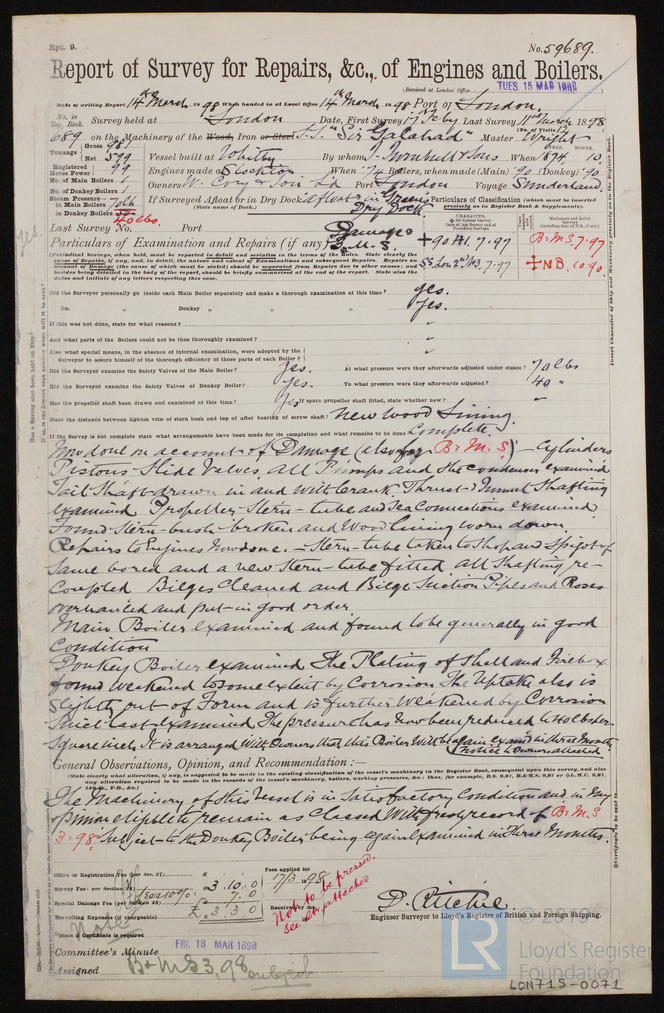 Rpt. 9.
No. 59689.
Report of Survey for Repairs, &c., of Engines and Boilers.
(Received at London Office TUES 15 MAR 1898
Date of writing Report 14th March 98 When handed in at Local Office 14th March 98 Port of London.
No. in Reg. Book. Survey held at London Date, First Survey 17 Feby Last Survey 11th March 1898
(No. of Visits 12)
689 on the Machinery of the Wood, Iron or Steel S.S. "Sir Galahad" Master Wright
Tonnage Gross 981 Net 599
Vessel built at Whitby By whom T. Turnbull & Sons When 1874 YEAR. MONTH. 10.
Registered Horse Power 99
Engines made at Stockton When '74 Boilers, when made (Main) '90 (Donkey) '90.
No. of Main Boilers 1
No. of Donkey Boilers 1
Owners W. Cory & Son Ld Port London Voyage Sunderland.
Steam Pressure in Main Boilers 70 lb
in Donkey Boilers 40 lbs.
If Surveyed Afloat or in Dry Dock Afloat & in Greens Dry Dock
(State name of Dock.)
Particulars of Classification (which must be inserted precisely as in Register Book & Supplements).
Last Survey No. Port
Particulars of Examination and Repairs (if any) Damages & B.M.S.
+90 A1. 7.97
SS. Lon. 2nd No3. 7.97
B.M.S 7.97
+NB. 10.90.
Did the Surveyor personally go inside each Main Boiler separately and make a thorough examination at this time? yes.
Do. " Donkey " " yes.
If this was not done, state for what reasons? "
And what parts of the Boilers could not be thus thoroughly examined? "
Also what special means, in the absence of internal examination, were adopted by the Surveyor to assure himself of the thorough efficiency of those parts of each Boiler? "
Did the Surveyor examine the Safety Valves of the Main Boiler? yes. At what pressure were they afterwards adjusted under steam? 70 lbs
Did the Surveyor examine the Safety Valves of Donkey Boiler? yes. To what pressure were they afterwards adjusted? 40 "
Has the propeller shaft been drawn and examined at this time? yes. If spare propeller shaft fitted, state whether new? "
State the distance between lignum vitæ of stern bush and top of after bearing of screw shaft? New wood lining.
If the Survey is not complete state what arrangements have been made for its completion and what remains to be done Complete.
Now done on account of Damage (also for B.M.S) — Cylinders
Pistons Slide Valves, all Pumps and the condenser examined
Tail Shaft drawn in and with Crank Thrust & Tunnel Shafting
examined Propeller Stern-tube and Sea Connections examined
Found Stern-bush broken and Wood lining worn down.
Repairs to Engines Now done. — Stern-tube taken to Shop and Spigot of
same bored and a new Stern-tube fitted all Shafting re-
coupled Bilges Cleaned and Bilge Suction Pipes and Roses
overhauled and put in good order.
Main Boiler examined and found to be generally in good
Condition
Donkey Boiler examined The Plating of Shell and Firebox
found weakened to some extent by Corrosion The Uptake also is
Slightly out of Form and is further Weakened by Corrosion
Since last examined The pressure has now been reduced to 40 lbs per
Square inch. It is arranged with Owners that this Boiler will be again examd in three Months
notice to Owners attached
General Observations, Opinion, and Recommendation:—
(State clearly what alteration, if any, is suggested to be made in the existing classification of the vessel's machinery in the Register Book, consequent upon this survey, and also any alteration required to be made in the records of the vessel's machinery, boilers, working pressures, &c.; thus, for example, B.S. 9,97, B.&M.S. 9,97 or
The Machinery of this Vessel is in Satisfactory Condition and in my
opinion eligible to remain as Classed with fresh record of B.M.S
3.98. Subject to the Donkey Boiler being again Examined in Three Months.
Office or Registration Fee (per Sec. 27) £
Survey Fee (per Section 28) £ 3.10.0
less 10%
Special Damage Fee (per Section 28) £
Travelling Expenses (if chargeable) £ 3.3.0
Fees applied for 17/3 1898
Received by me,
Not to be pressed.
See attached
D. Ritchie.
Engineer Surveyor to Lloyd's Register of British and Foreign Shipping.
State if Certificate is required
Committee's Minute FRI. 18 MAR 1898
Assigned B & MS 3,98 subject
LR
© 2019
Lloyd's Register
Foundation
LON715-0071